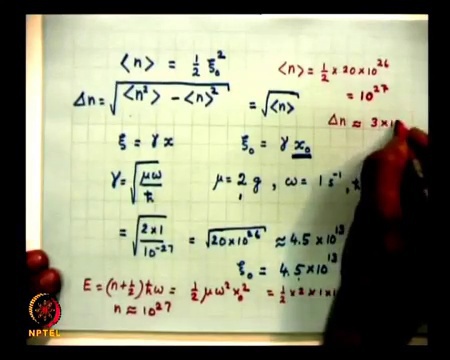 <n> = 1/2 ξ₀²
Δn = √(<n²> - <n>²) = √<n>
<n> = 1/2 × 20 × 10²⁶
= 10²⁷
Δn ≈ 3 × 1
ξ = γ x
ξ₀ = γ x₀
γ = √(μω/ħ)
μ = 2 g , ω = 1 s⁻¹,
= √(2×1/10⁻²⁷) = √(20×10²⁶) ≈ 4.5 × 10¹³
ξ₀ = 4.5 × 10¹³
E = (n+½)ħω = ½ μω² x₀² = ½ × 2 × 1 ×
n ≈ 10²⁷
NPTEL